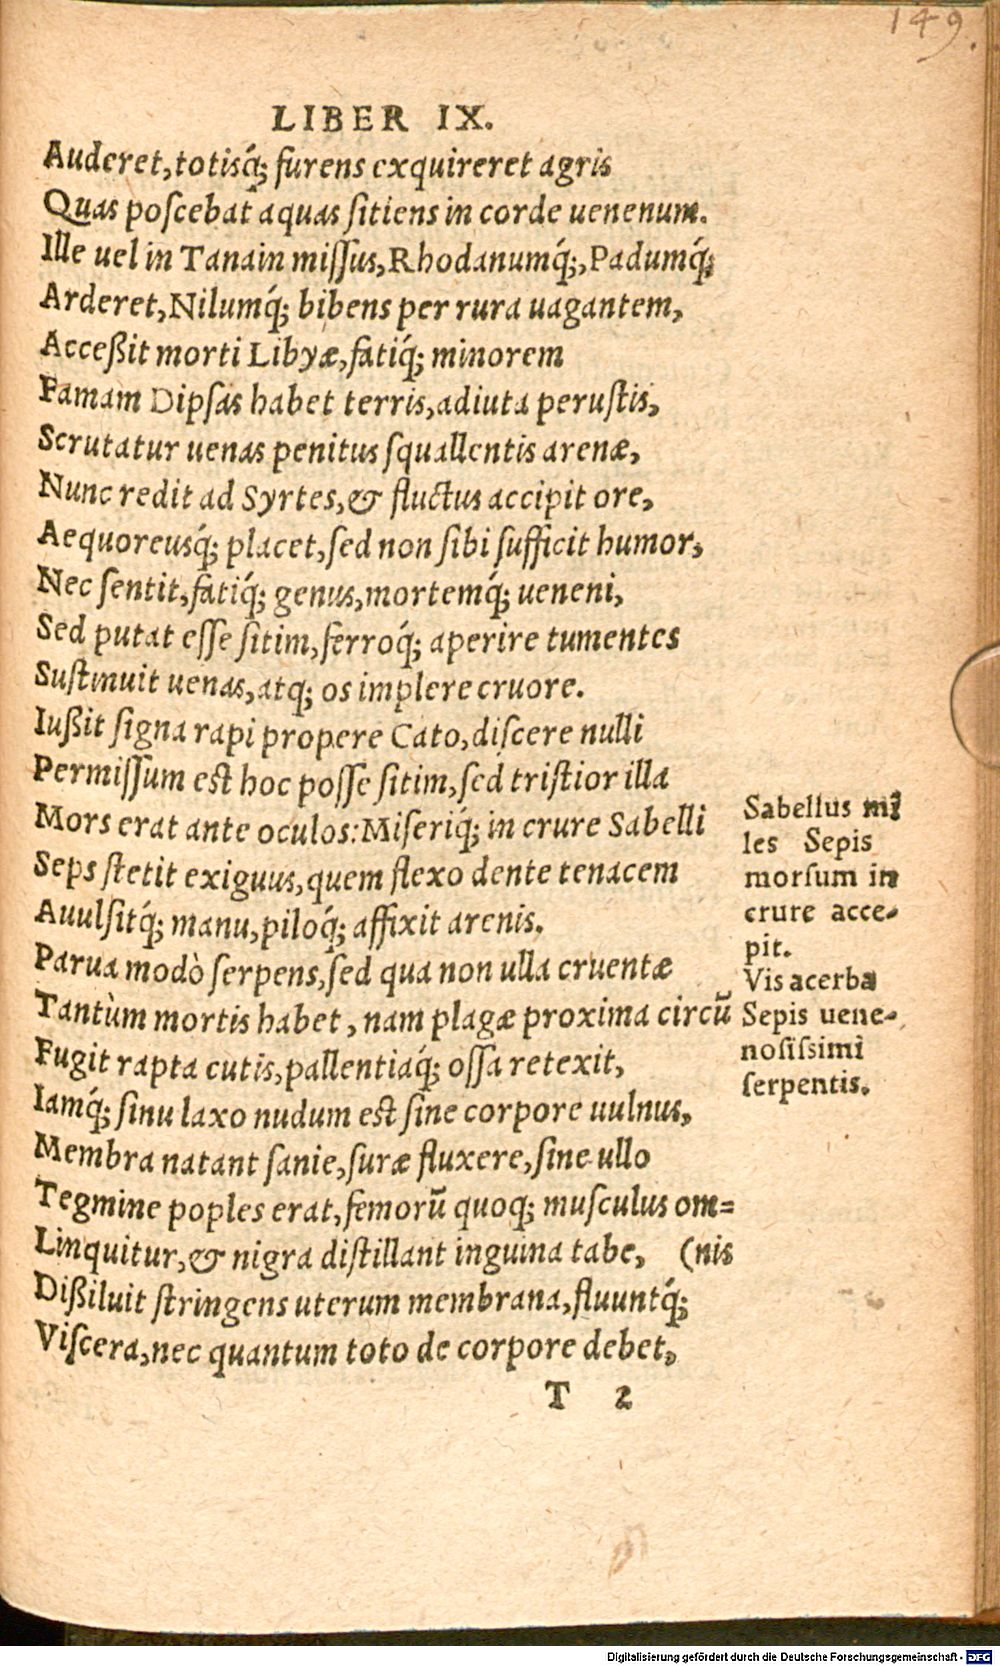 149.
LIBER IX.
Auderet, totisq́; furens exquireret agris
Quas poscebat aquas sitiens in corde uenenum.
Ille uel in Tanain missus, Rhodanumq́;, Padumq́;
Arderet, Nilumq́; bibens per rura uagantem,
Acceßit morti Libyæ, fatiq́; minorem
Famam Dipsas habet terris, adiuta perustis,
Scrutatur uenas penitus squallentis arenæ,
Nunc redit ad Syrtes, & fluctus accipit ore,
Aequoreusq́; placet, sed non sibi sufficit humor,
Nec sentit, fatiq́; genus, mortemq́; ueneni,
Sed putat esse sitim, ferroq́; aperire tumentes
Sustinuit uenas, atq; os implere cruore.
Iußit signa rapi propere Cato, discere nulli
Permissum est hoc posse sitim, sed tristior illa
Mors erat ante oculos: Miseriq́; in crure Sabelli
Seps stetit exiguus, quem flexo dente tenacem
Auulsitq́; manu, piloq́; affixit arenis.
Parua modò serpens, sed qua non ulla cruentæ
Tantùm mortis habet, nam plagæ proxima circū
Fugit rapta cutis, pallentiaq́; ossa retexit,
Iamq́; sinu laxo nudum est sine corpore uulnus,
Membra natant sanie, suræ fluxere, sine ullo
Tegmine poples erat, femorū quoq; musculus om-
Linquitur, & nigra distillant inguina tabe, (nis
Dißiluit stringens uterum membrana, fluuntq́;
Viscera, nec quantum toto de corpore debet,
T 2
Sabellus mi
les Sepis
morsum in
crure acce-
pit.
Vis acerba
Sepis uene-
nosissimi
serpentis.
Digitalisierung gefördert durch die Deutsche Forschungsgemeinschaft - DFG